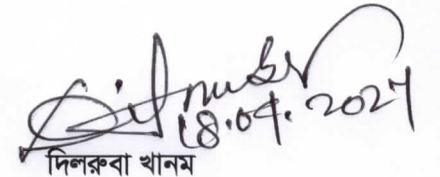 18.04.2027
দিলরুবা খানম